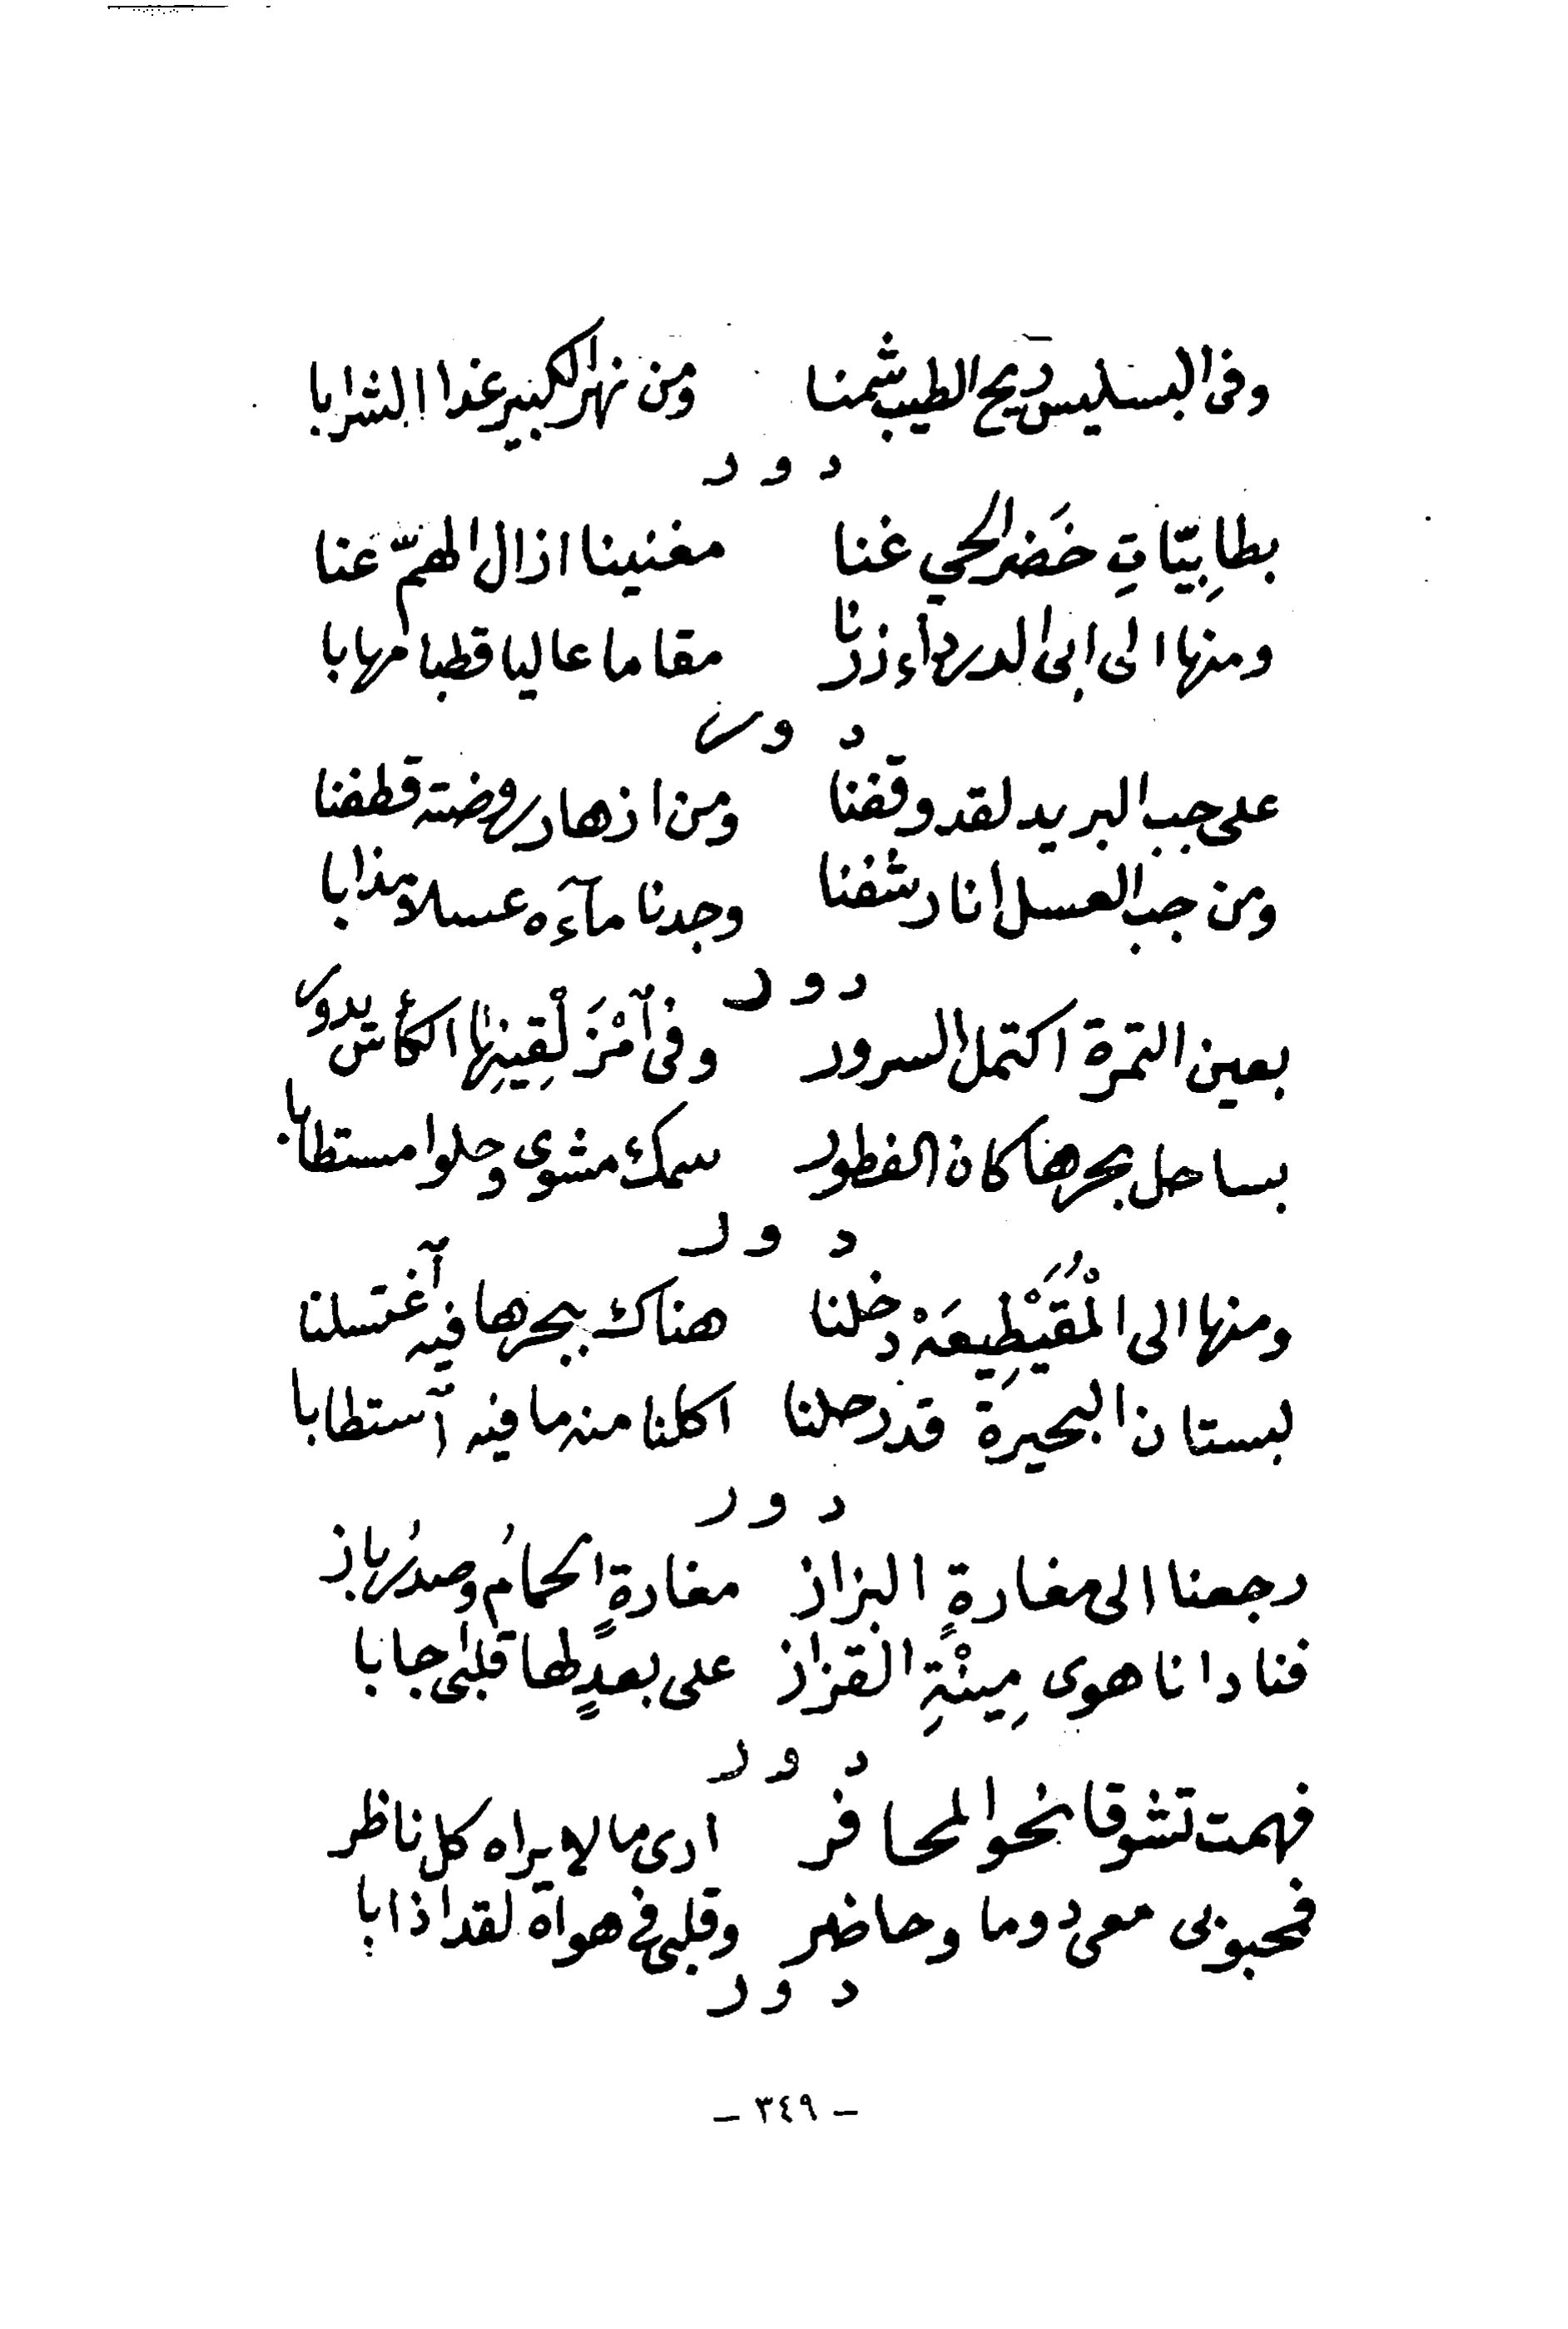 وفى البسليس ريح الطيب شممنا ومن نهر الكبير غدا الشرابا
دور
بطابِيّاتِ خَضر الحي غنا مغنينا ازال الهمّ عنا
ومنها الى ابى الدرداء زرنا مقاما عاليا قطبا مهابا
دور
على جب البريد لقد وقفنا ومن ازهار روضته قطفنا
ومن جب العسل انا رشفنا وجدنا مآءه عسلا مذابا
دور
بعين التمرة اكتمل السرور وفى آمْرَ لْقِينِها الكأس يدور
بساحل بحرها كان الفطور سمك مشوى وحلوا مستطابا
دور
ومنها الى الْمُقَيْطِيعَهْ دخلنا هناك ببحرها فيه آغتسلنا
لبستان البحيرة قد رحلنا اكلنا منه ما فيه آستطابا
دور
رجعنا الى مغارةٍ البزاز مغارةٍ الحمامُ وصدرُ باز
فنادانا هوى مِينْةِ القزاز على بعدٍ لها قلبى جابا
دور
فهمت تشوقا نحو المحافر ارى ما لا يراه كل ناظر
فمحبوبى معى دوما وحاضر وقلبى فى هواه لقد اذابا
دور
– ٣٤٩ –